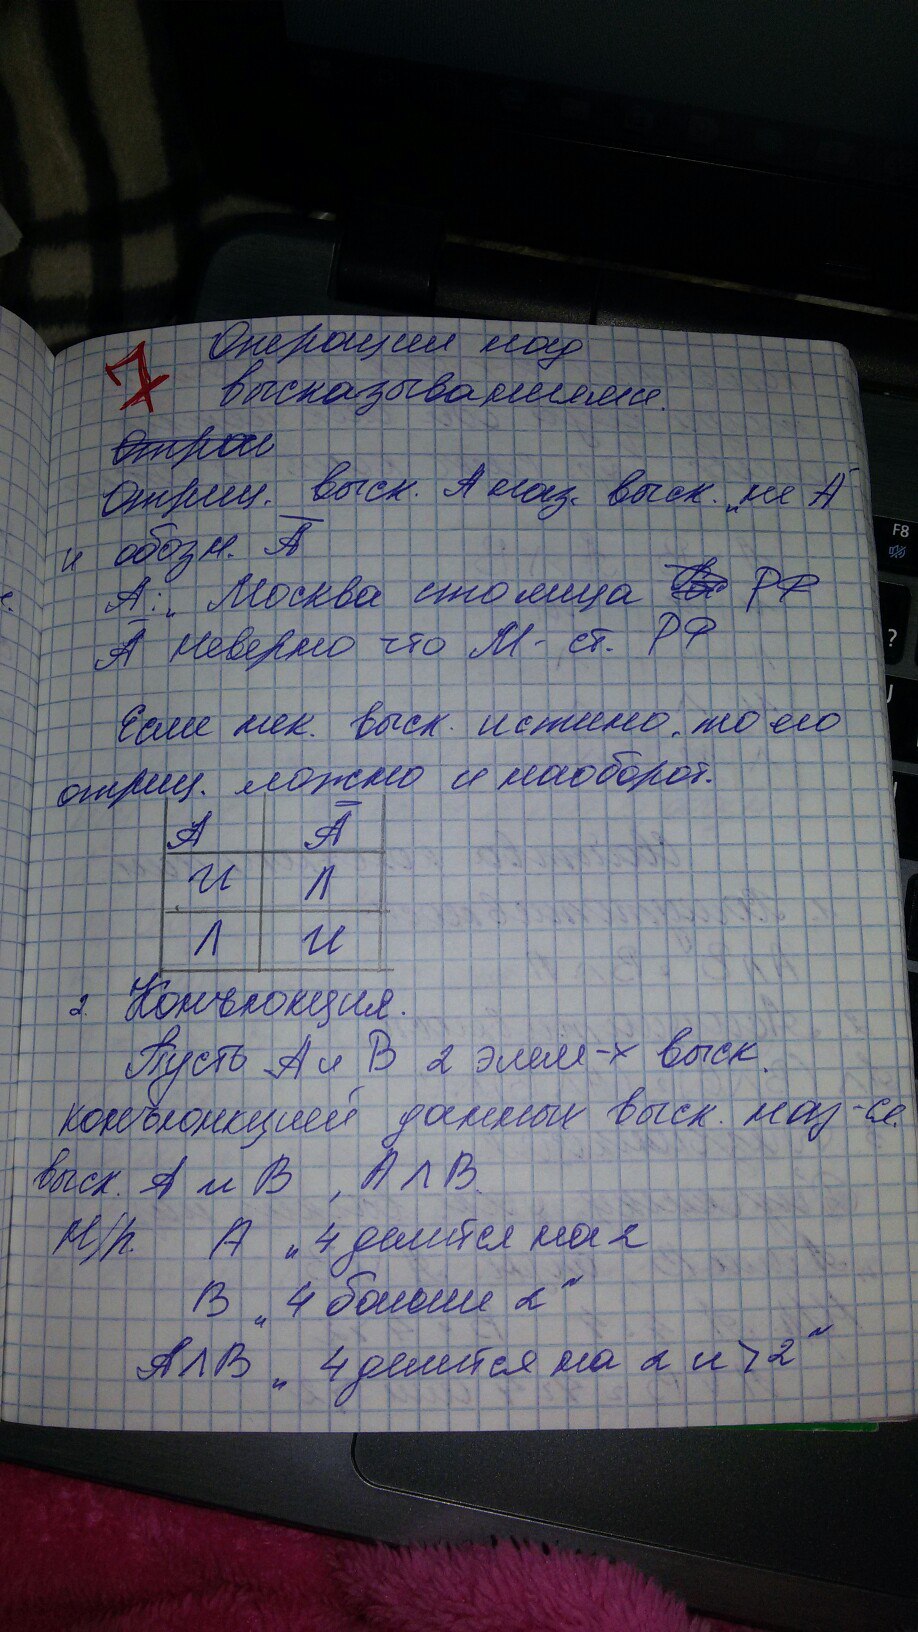 7
Операции над
высказываниями.
Отриц. выск. А наз. выск. „не А"
и обозн. Ā
А: „Москва столица РФ
Ā неверно что М- ст. РФ
Если нек. выск. истино, то его
отриц. ложно и наоборот.
А Ā
И Л
Л И
2. Конъюкция.
Пусть А и В 2 элем-х выск.
конъюнкцией данных выск. наз-ся.
выск. А и В , А∧В.
Н/р. А „4 делится на 2
В „4 больше 2"
А∧В „4 делится на 2 и >2"
F8
?
с.